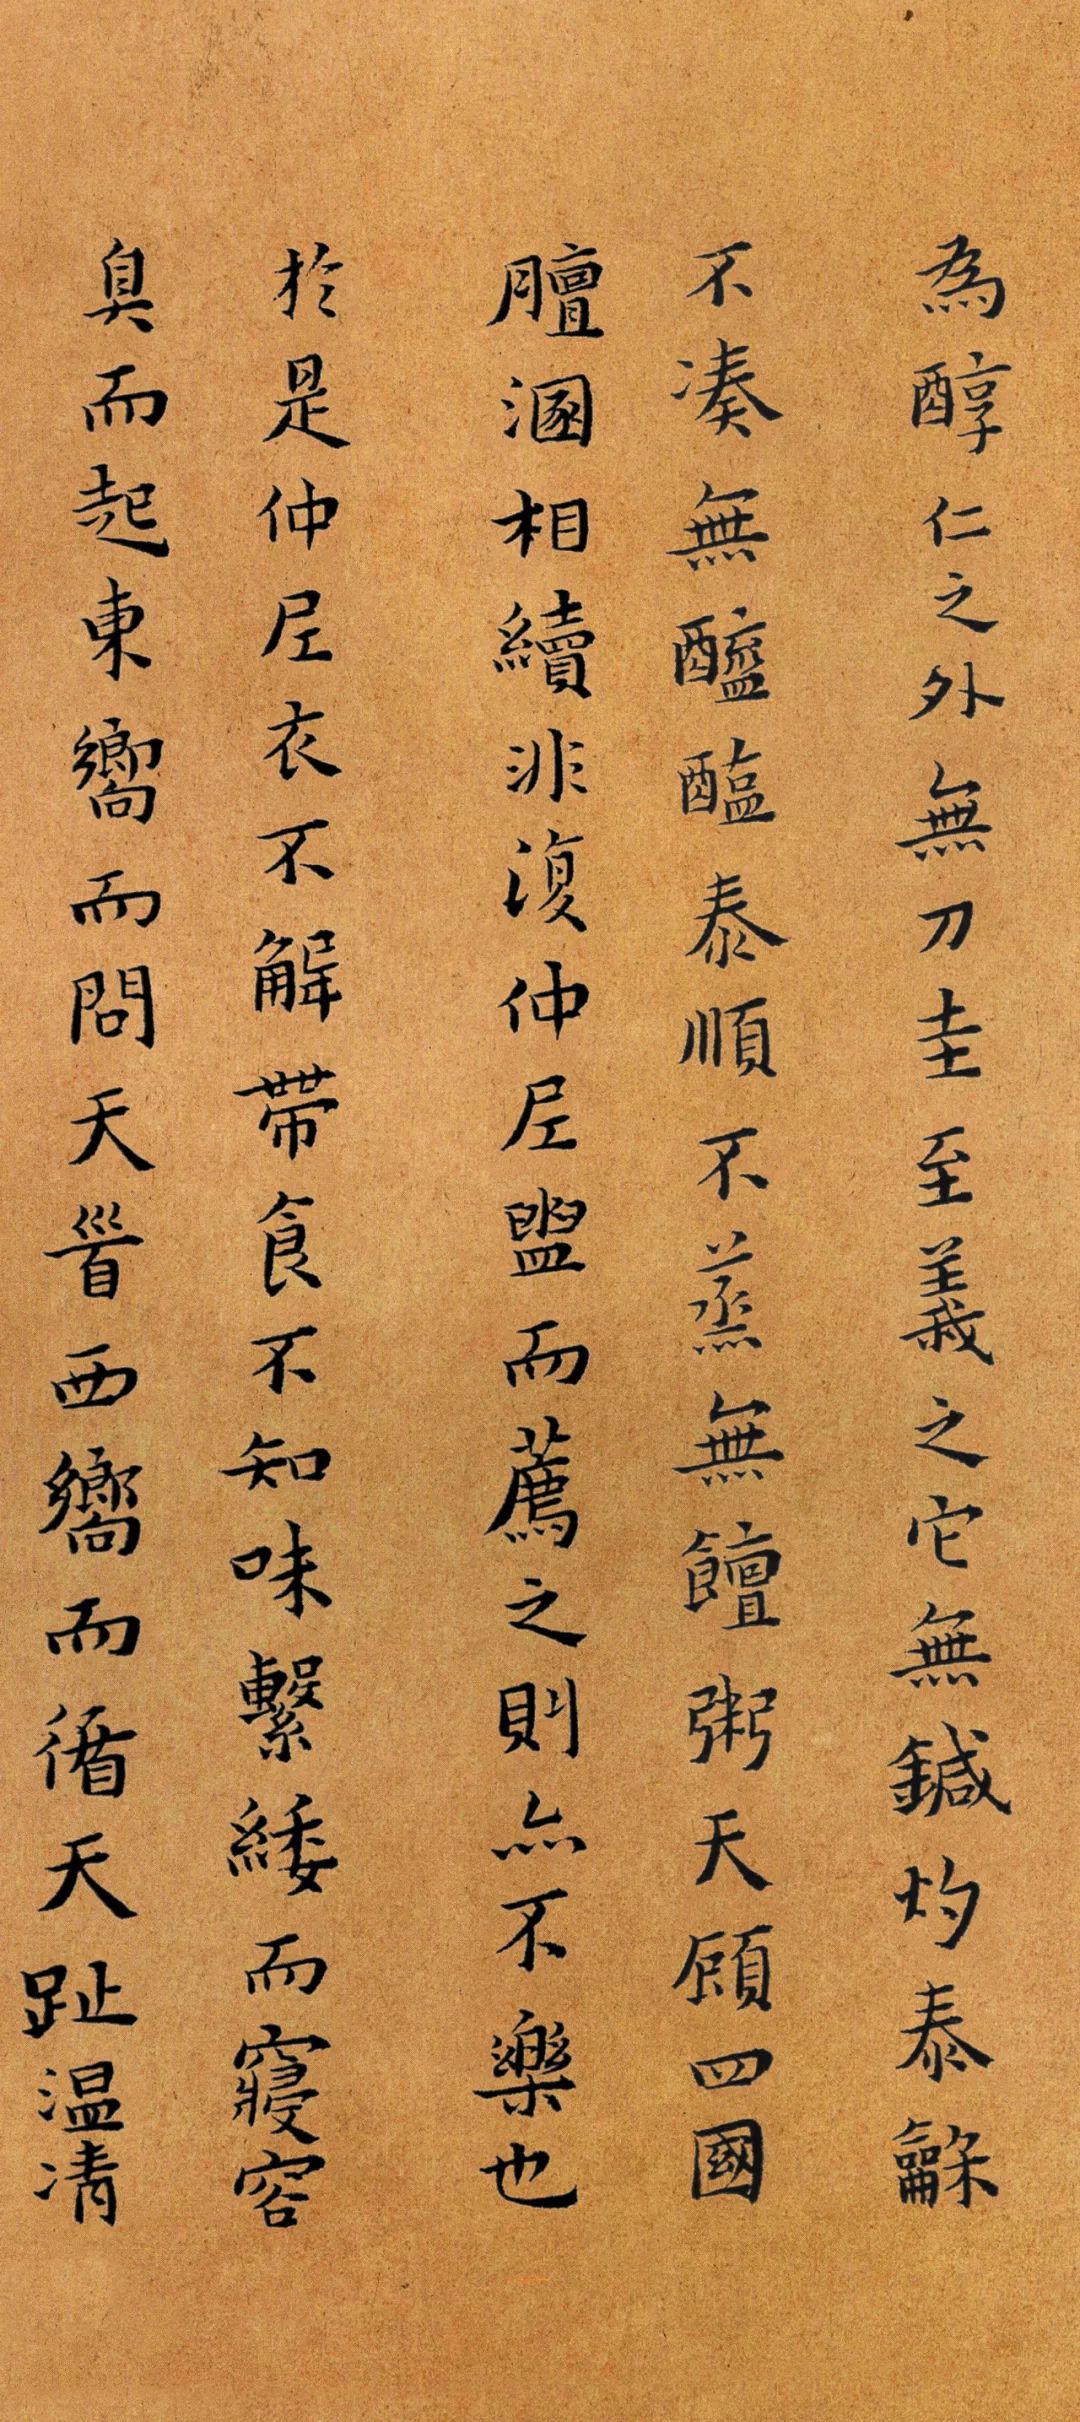 為醇仁之外無刀圭至義之它無鍼灼泰龢
不凑無醯醢泰順不蒸無饘粥天顧四國
膻溷相續非復仲尼盥而薦之則亦不樂也
於是仲尼衣不解帶食不知味繫緌而寢容
臭而起東嚮而問天首西嚮而循天趾温凊